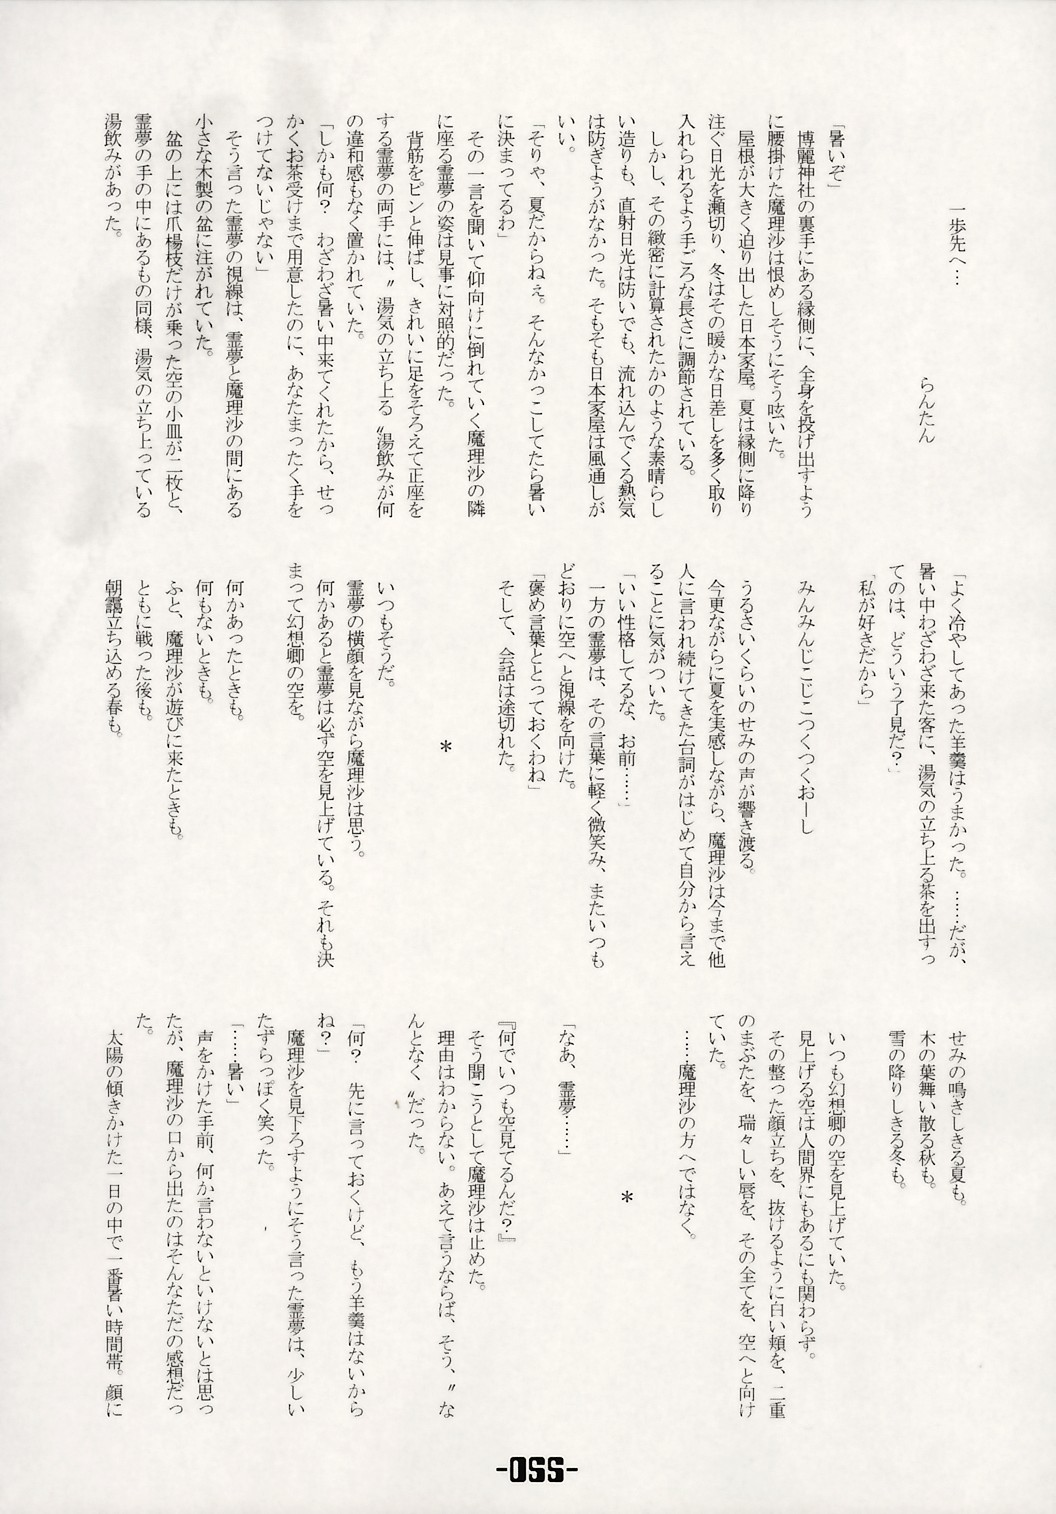 一歩先へ…
らんたん
「暑いぞ」
博麗神社の裏手にある縁側に、全身を投げ出すよう
に腰掛けた魔理沙は恨めしそうにそう呟いた。
屋根が大きく迫り出した日本家屋。夏は縁側に降り
注ぐ日光を遮切り、冬はその暖かな日差しを多く取り
入れられるよう手ごろな長さに調節されている。
しかし、その緻密に計算されたかのような素晴らし
い造りも、直射日光は防いでも、流れ込んでくる熱気
は防ぎようがなかった。そもそも日本家屋は風通しが
いい。
「そりゃ、夏だからねぇ。そんなかっこしてたら暑い
に決まってるわ」
その一言を聞いて仰向けに倒れていく魔理沙の隣
に座る霊夢の姿は見事に対照的だった。
背筋をピンと伸ばし、きれいに足をそろえて正座を
する霊夢の両手には、〝湯気の立ち上る〟湯飲みが何
の違和感もなく置かれていた。
「しかも何？　わざわざ暑い中来てくれたから、せっ
かくお茶受けまで用意したのに、あなたまったく手を
つけてないじゃない」
そう言った霊夢の視線は、霊夢と魔理沙の間にある
小さな木製の盆に注がれていた。
盆の上には爪楊枝だけが乗った空の小皿が二枚と、
霊夢の手の中にあるもの同様、湯気の立ち上っている
湯飲みがあった。
「よく冷やしてあった羊羹はうまかった。……だが、
暑い中わざわざ来た客に、湯気の立ち上る茶を出すっ
てのは、どういう了見だ？」
「私が好きだから」
みんみんじこじこつくつくおーし
うるさいくらいのせみの声が響き渡る。
今更ながらに夏を実感しながら、魔理沙は今まで他
人に言われ続けてきた台詞がはじめて自分から言え
ることに気がついた。
「いい性格してるな、お前……」
一方の霊夢は、その言葉に軽く微笑み、またいつも
どおりに空へと視線を向けた。
「褒め言葉ととっておくわね」
そして、会話は途切れた。
＊
いつもそうだ。
霊夢の横顔を見ながら魔理沙は思う。
何かあると霊夢は必ず空を見上げている。それも決
まって幻想卿の空を。
何かあったときも。
何もないときも。
ふと、魔理沙が遊びに来たときも。
ともに戦った後も。
朝靄立ち込める春も。
せみの鳴きしきる夏も。
木の葉舞い散る秋も。
雪の降りしきる冬も。
いつも幻想卿の空を見上げていた。
見上げる空は人間界にもあるにも関わらず。
その整った顔立ちを、抜けるように白い頬を、二重
のまぶたを、瑞々しい唇を、その全てを、空へと向け
ていた。
……魔理沙の方へではなく。
＊
「なあ、霊夢……」
『何でいつも空見てるんだ？』
そう聞こうとして魔理沙は止めた。
理由はわからない。あえて言うならば、そう、〝な
んとなく〟だった。
「何？　先に言っておくけど、もう羊羹はないから
ね？」
魔理沙を見下ろすようにそう言った霊夢は、少しい
たずらっぽく笑った。
「……暑い」
声をかけた手前、何か言わないといけないとは思っ
たが、魔理沙の口から出たのはそんなただの感想だっ
た。
太陽の傾きかけた一日の中で一番暑い時間帯。顔に
-055-